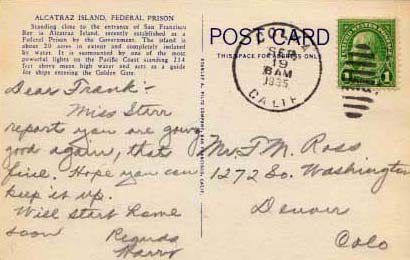 ALCATRAZ ISLAND, FEDERAL PRISON
Standing close to the entrance of San Francisco
Bay is Alcatraz Island, recently established as a
Federal Prison by the Government. The island is
about 20 acres in extent and completely isolated
by water. It is surmounted by one of the most
powerful lights on the Pacific Coast standing 214
feet above mean high water and acts as a guide
for ships entering the Golden Gate.
POST CARD
THIS SPACE FOR ADDRESS ONLY
SEP
19
8 AM
1935
CALIF.
1
1
Dear Frank:-
Miss Starr
reports you are going
good again, that
fine. Hope you can
keep it up.
Will start home
soon
Regards
Harry
Mr. F. M. Ross
1272 So. Washington
Denver
Colo